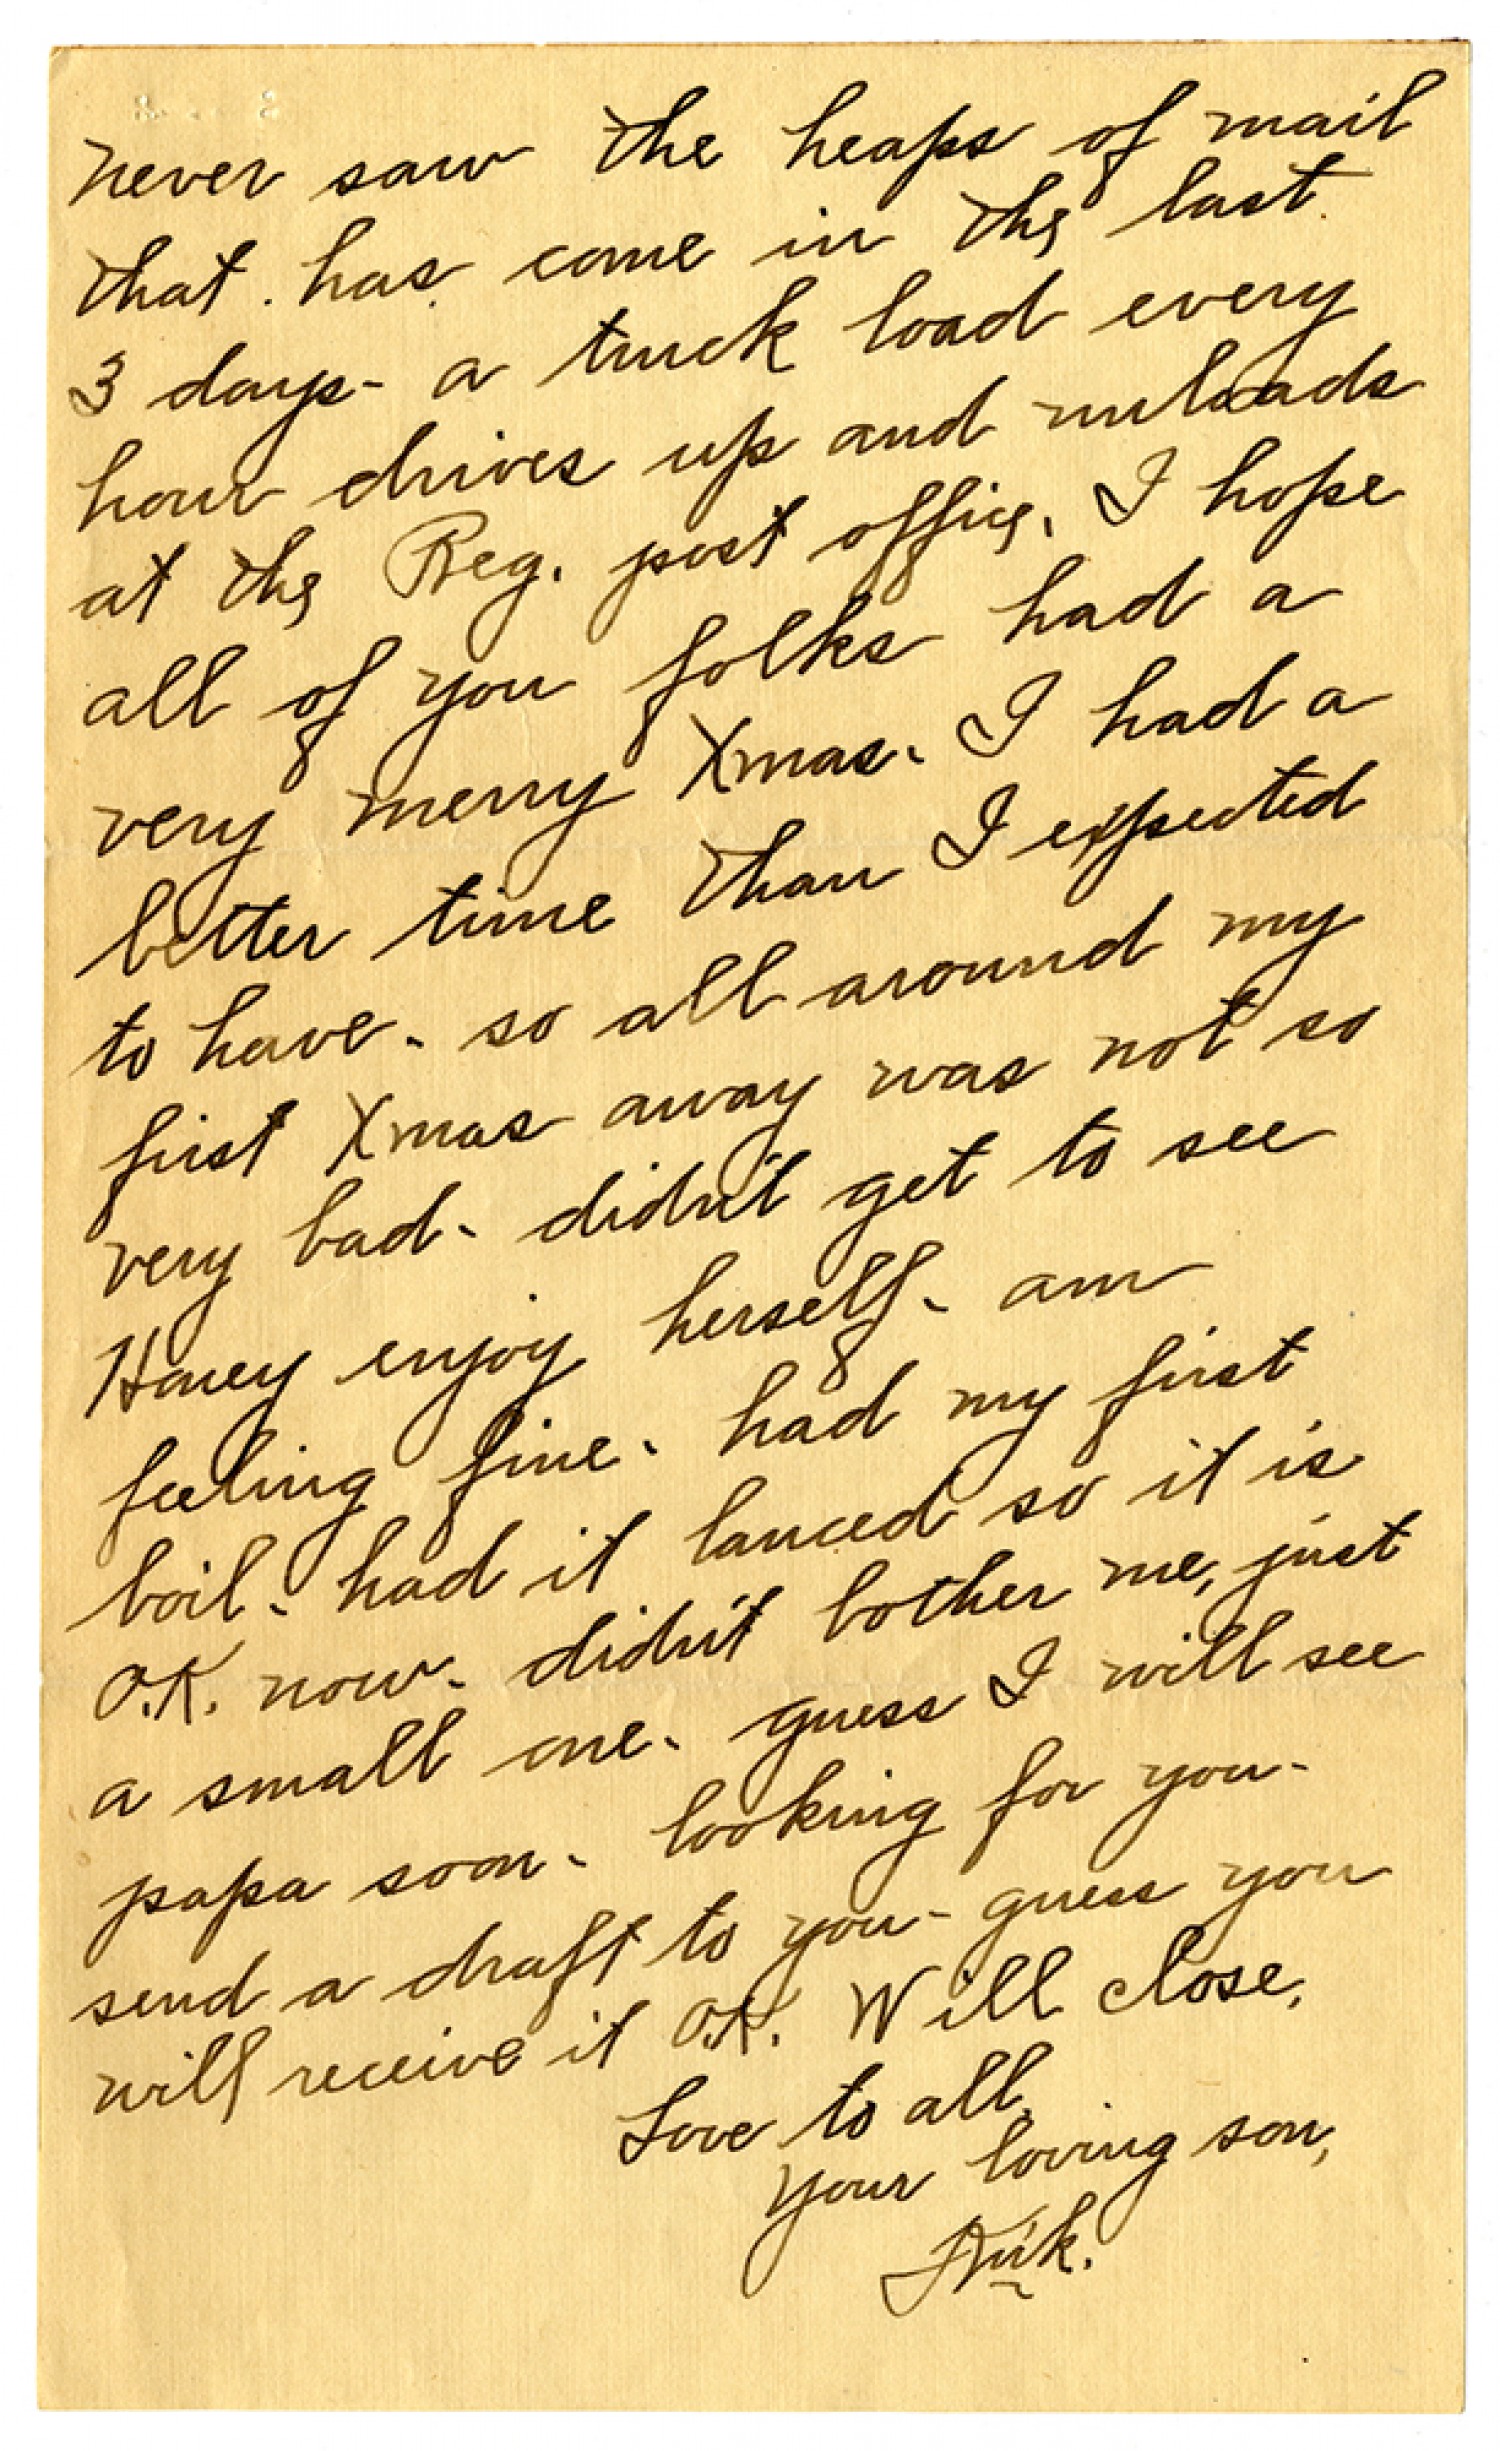 never saw the heaps of mail
that has come in the last
3 days - a truck load every
hour drives up and unloads
at the Reg. post office. I hope
all of you folks had a
very merry Xmas. I had a
better time than I expected
to have. so all around my
first Xmas away was not so
very bad. didn't get to see
Honey enjoy herself. am
feeling fine. had my first
boil. had it lanced so it is
O.K. now. didn't bother me, just
a small one. guess I will see
papa soon. looking for you.
send a draft to you - guess you
will receive it O.K. Will close.
Love to all,
Your loving son,